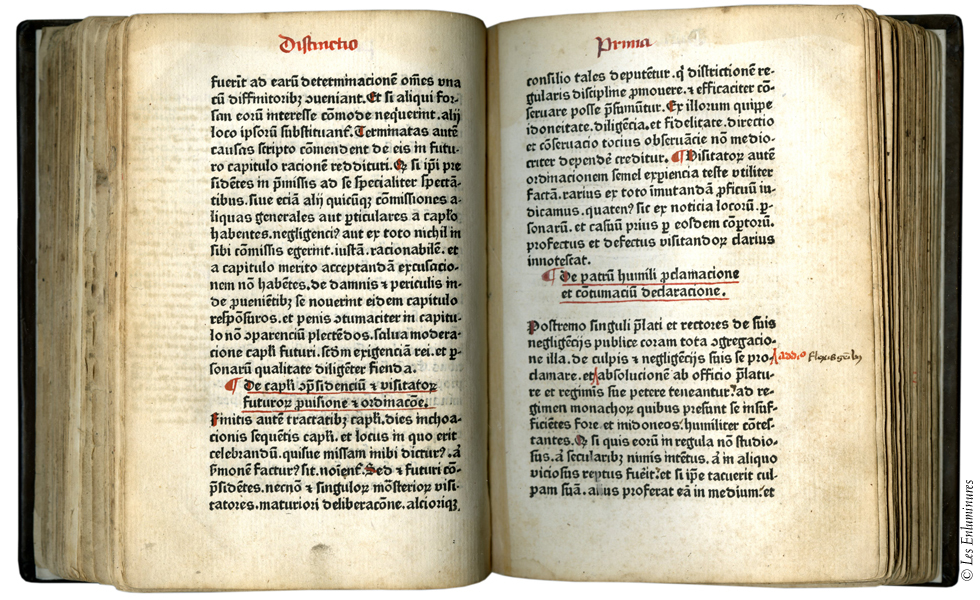 Distinctio
fuerīt ad earū determinacionē om̄es vna
cū diffinitoribꝫ ꝯueniant. Et si aliqui for-
san eorū interesse cōmode nequerint. alij
loco ipsorū substituant᷑. Terminatas autē
causas scripto cōmendent de eis in futu
ro capitulo racionē reddituri. Qꝫ si ip̄i pre
sidētes in p̄missis ad se specialiter spectā-
tibus. siue eciā alij quicūqꝫ cōmissiones a-
liquas generales aut ꝑticulares a capl̓o
habentes. negligenciꝰ aut ex toto nichil in
sibi cōmissis egerint. iustā. racionabilē. et
a capitulo merito acceptandā excusacio-
nem nō habētes. de damnis et periculis in-
de ꝓueniētibꝫ se nouerint eidem capitulo
respōsuros. et penis ꝯtumaciter in capitu
lo nō ꝯparenciū plectēdos. salua modera-
cione capl̓i futuri. scd̄m exigenciā rei. et ꝑ-
sonarū qualitate diligēter fienda.
¶ De capl̓i ꝯp̄sidenciū ⁊ visitatoꝝ
futuroꝝ ꝓuisione ⁊ ordinacōe.
Finitis autē tractatibꝫ capl̓i. dies inchoa-
cionis sequētis capl̓i. et locus in quo erit
celebrandū. quisue missam inibi dicturꝰ. aut̓
ẜmonē facturꝰ sit. noīent᷑. Sed ⁊ futuri cō-
p̄sidētes. necnō ⁊ singuloꝝ mōsterioꝝ visi-
tatores. maturiori deliberacōne. alcioriqꝫ
Prima
consilio tales deputētur. ꝙ districtionē re-
gularis discipline ꝓmouere. ⁊ efficaciter cō-
seruare posse p̄sumūtur. Ex illorum quippe
idoneitate. diligēcia. et fidelitate. directio
et cōseruacio tocius obseruācie nō medio-
criter dependē creditur. ¶ Visitatoꝝ autē
ordinacionem semel expiencia teste vtiliter
factā. rarius ex toto īmutandā ꝓficuū iu-
dicamus. quatenꝰ sic ex noticia locorū. ꝑ-
sonarū. et casuū prius ꝑ eosdem cōꝑtorū.
profectus et defectus visitandoꝝ clarius
innotescat.
¶ De patrū humili ꝓclamacione
et cōtumaciū declaracione.
Postremo singuli p̄lati et rectores de suis
negligēcijs publice coram tota ꝯgregacio-
ne illa. de culpis ⁊ negligēcijs suis se pro-
clamare. et absolucionē ab officio p̄latu-
re et regimīs sue petere teneantur. ad re-
gimen monachoꝝ quibus p̄sunt se insuf-
ficiētes fore. et mīdoneos. humiliter cōtes-
tantes. Qꝫ si quis eorū in regula nō studio-
sus. a̓ secularibꝫ nimis intētus. a̓ in aliquo
viciosus reptus fueīt. et si ip̄e tacuerit cul-
pam suā. alius proferat eā in medium. et
addico
© Les Enluminures